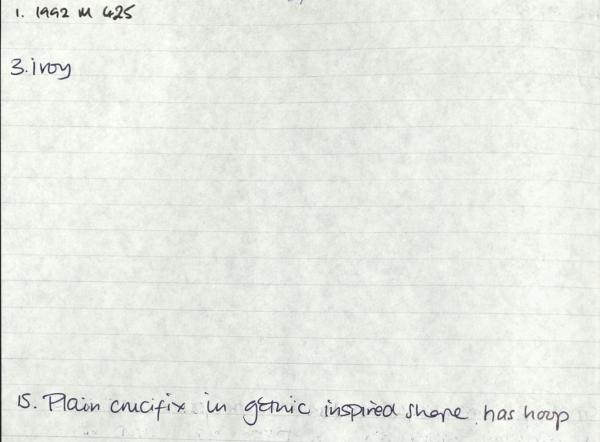 1. 1992 M 425
3. ivoy
15. Plain crucifix in gothic inspired shape. has hoop